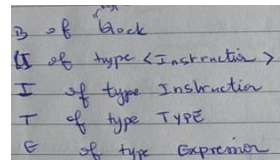 B of block
of type <Instruction>
I of type Instruction
T of type TYPE
E of type Expression